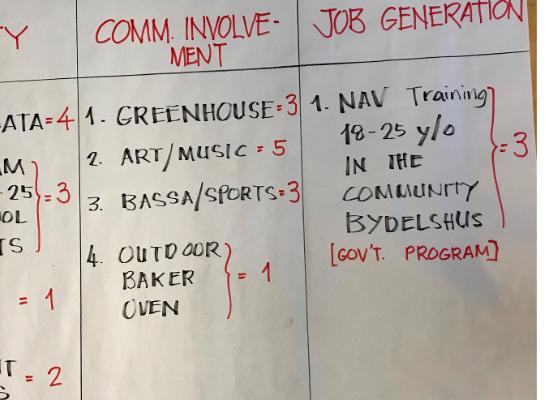 TY
ATA = 4
AM
25 } = 3
OOL
TS
= 1
IT
S = 2
COMM. INVOLVE-
MENT
1. GREENHOUSE = 3
2. ART/MUSIC = 5
3. BASSA/SPORTS = 3
4. OUTDOOR
BAKER } = 1
OVEN
JOB GENERATION
1. NAV Training
18-25 y/o
IN THE } = 3
COMMUNITY
BYDELSHUS
[GOV'T. PROGRAM]